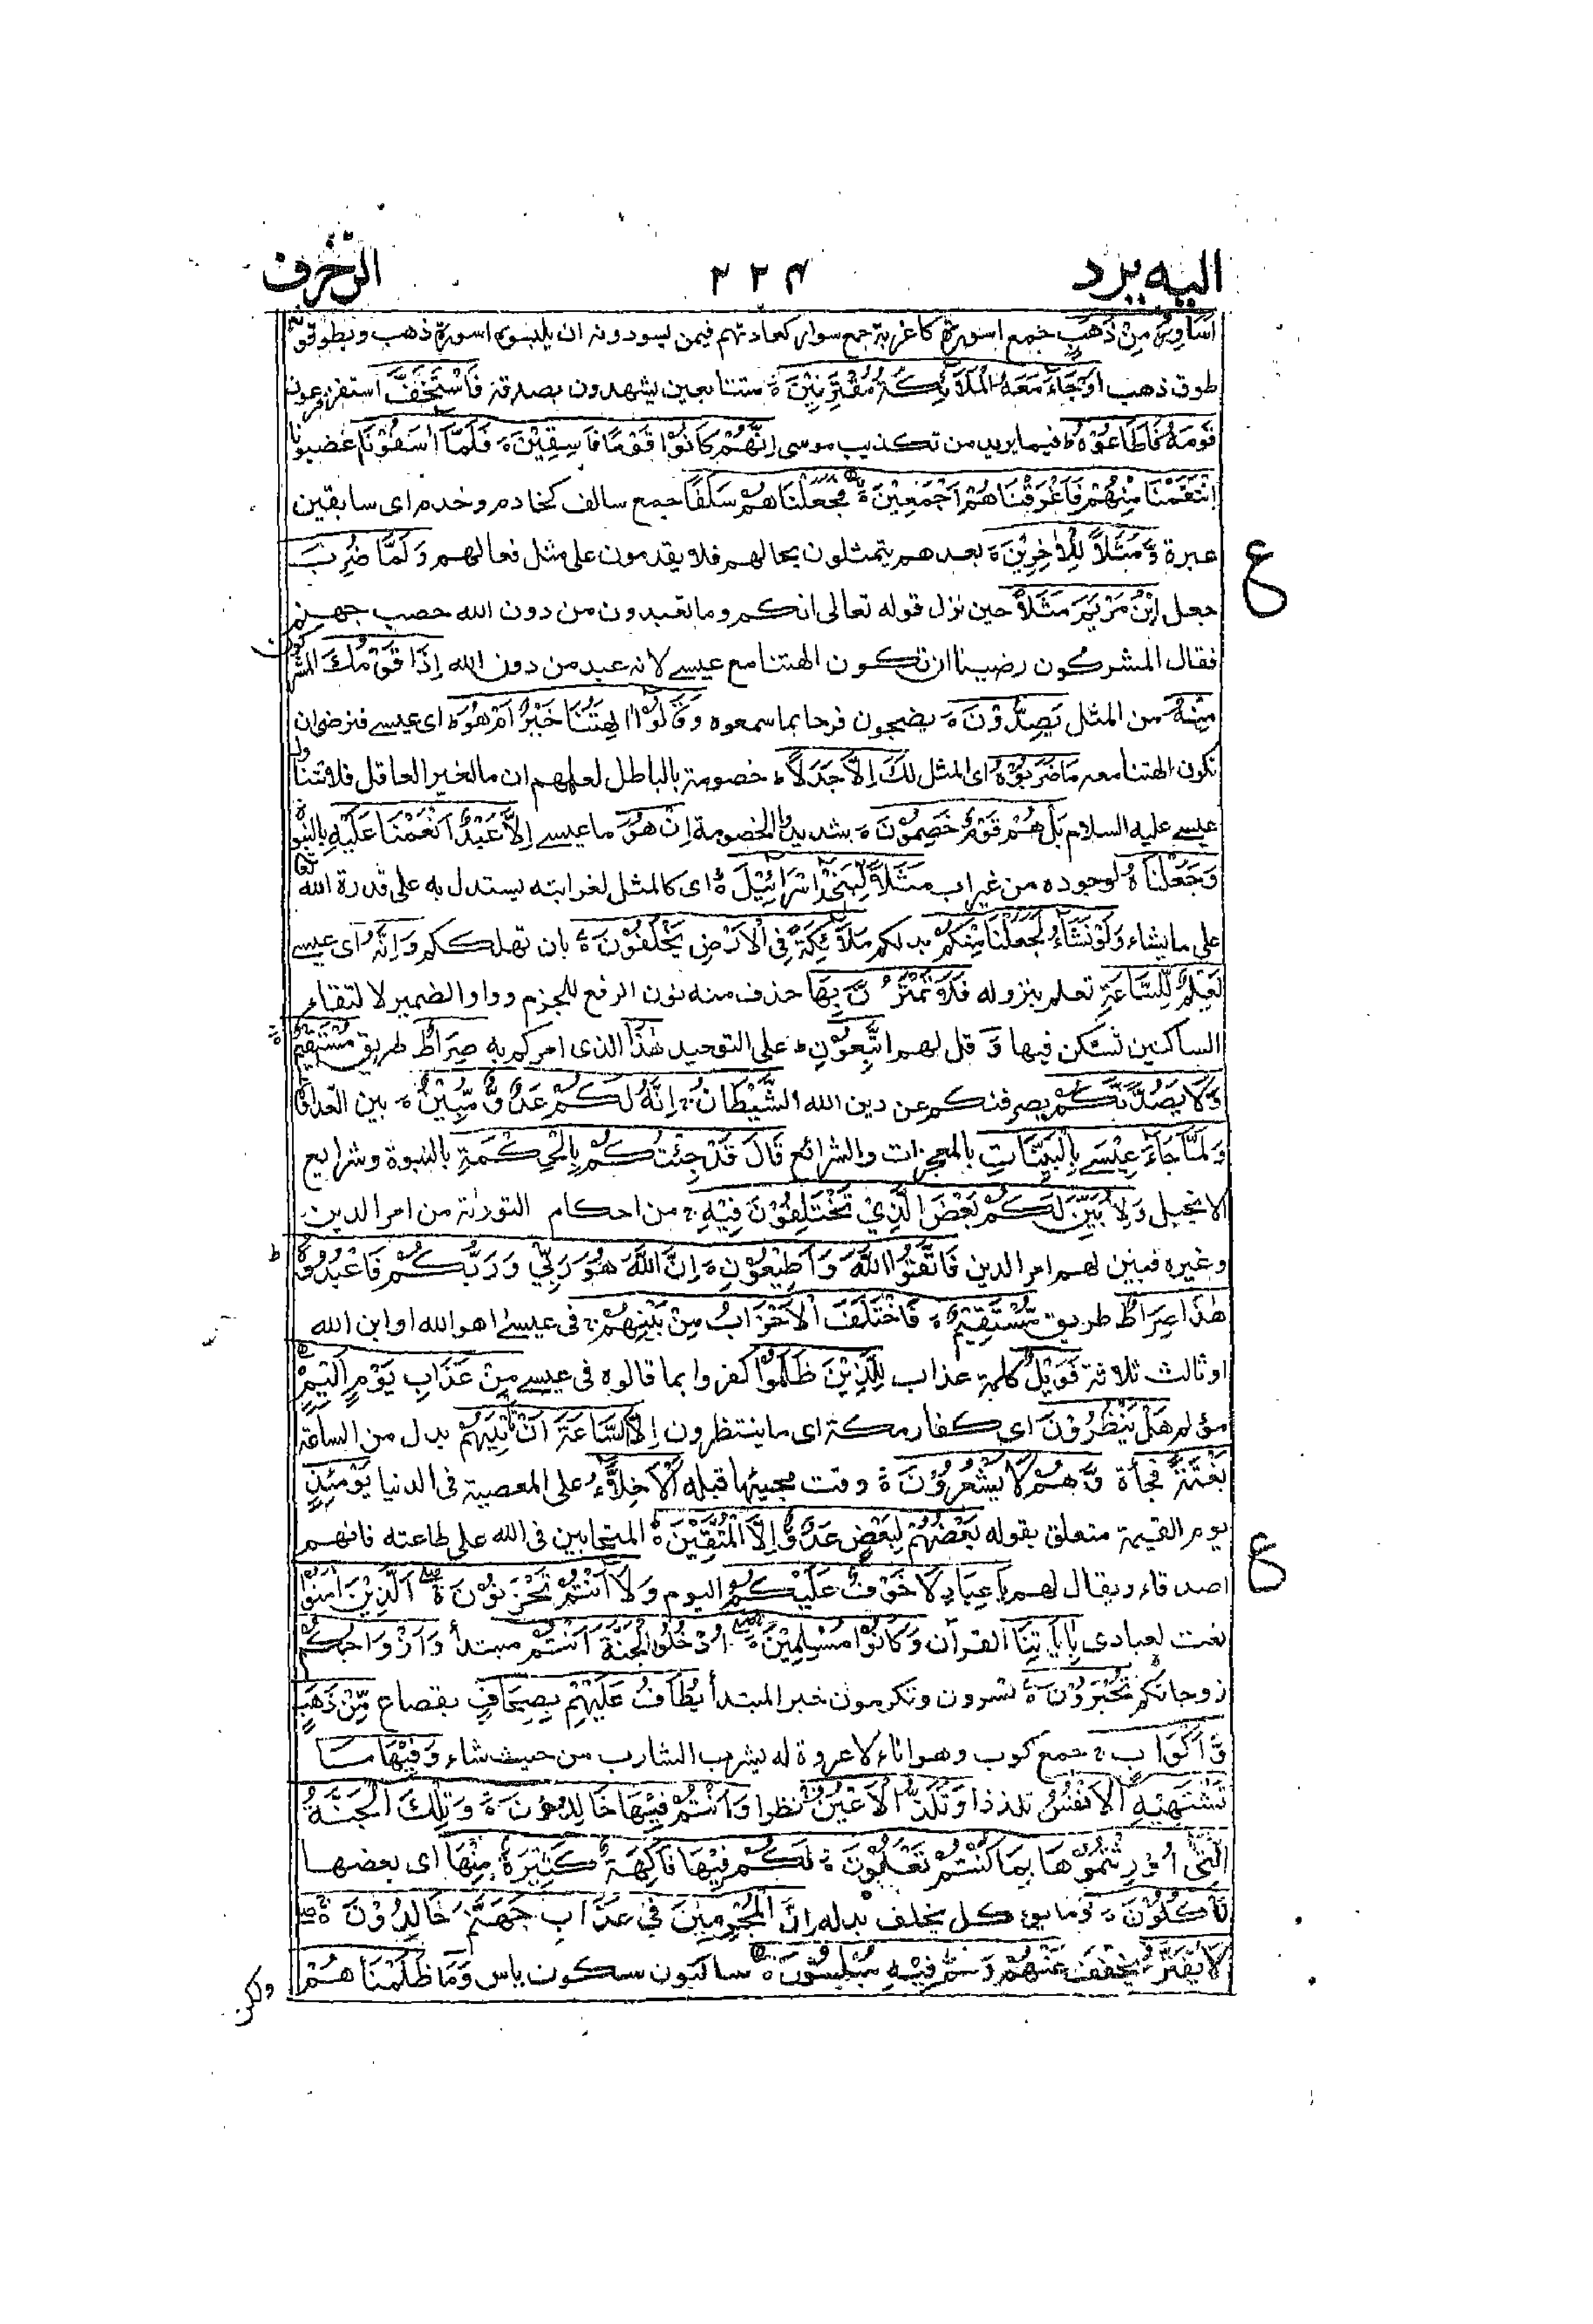 اليه يرد ٢٢٤ الزخرف
اَسَاوِرُ مِنْ ذَهَبٍ جمع اسورة كاغربة جمع سوار كعادتهم فيمن يسودونه ان يلبسوه اسورة ذهب ويطوقونه
طوق ذهب اَوْ جَاءَ مَعَهُ الْمَلَآئِكَةُ مُقْتَرِنِيْنَ ه متتابعين يشهدون بصدقه فَاسْتَخَفَّ استفز فرعون
قَوْمَهٗ فَاَطَاعُوْهُ ط فيما يريد من تكذيب موسى اِنَّهُمْ كَانُوْا قَوْمًا فَاسِقِيْنَ ه فَلَمَّآ اٰسَفُوْنَا اغضبونا
انْتَقَمْنَا مِنْهُمْ فَاَغْرَقْنَاهُمْ اَجْمَعِيْنَ ه فَجَعَلْنَاهُمْ سَلَفًا جمع سالف كخادم وخدم اى سابقين
عبرة وَّمَثَلًا لِّلْاٰخِرِيْنَ ه بعدهم يتمثلون بحالهم فلا يقدمون على مثل فعالهم وَلَمَّا ضُرِبَ
ع
جعل ابْنُ مَرْيَمَ مَثَلًا حين نزل قوله تعالى انكم وما تعبدون من دون الله حصب جهنم
فقال المشركون رضينا ان تكون الهتنا مع عيسے لانه عبد من دون الله اِذَا قَوْمُكَ المشركون
مِنْهُ من المثل يَصِدُّوْنَ ه يضجون فرحا بما سمعوه وَقَالُوْٓا ءَاٰلِهَتُنَا خَيْرٌ اَمْ هُوَ ط اى عيسے فنرضى ان
تكون الهتنا معه مَا ضَرَبُوْهُ اى المثل لَكَ اِلَّا جَدَلًا ط خصومة بالباطل لعلمهم ان ما لغير العاقل فلا يتناول
عيسے عليه السلام بَلْ هُمْ قَوْمٌ خَصِمُوْنَ ه شديدوا الخصومة اِنْ هُوَ ما عيسے اِلَّا عَبْدٌ اَنْعَمْنَا عَلَيْهِ بالنبوة
وَجَعَلْنَاهُ لوجوده من غير اب مَثَلًا لِّبَنِيْٓ اِسْرَائِيْلَ ه اى كالمثل لغرابته يستدل به على قدرة الله تعالى
على ما يشاء وَلَوْ نَشَآءُ لَجَعَلْنَا مِنْكُمْ بدلكم مَلَآئِكَةً فِى الْاَرْضِ يَخْلُفُوْنَ ه بان نهلككم وَاِنَّهٗ اى عيسے
لَعِلْمٌ لِّلسَّاعَةِ تعلم بنزوله فَلَا تَمْتَرُنَّ بِهَا حذف منه نون الرفع للجزم وواو الضمير لالتقاء
الساكنين تشكن فيها وَ قل لهم اتَّبِعُوْنِ ط على التوحيد هٰذَا الذى امركم به صِرَاطٌ طريق مُّسْتَقِيْمٌ ه
وَلَا يَصُدَّنَّكُمُ يصرفنكم عن دين الله الشَّيْطَانُ ج اِنَّهٗ لَكُمْ عَدُوٌّ مُّبِيْنٌ ه بين العداوة
وَلَمَّا جَآءَ عِيْسٰے بِالْبَيِّنَاتِ بالمعجزات والشرائع قَالَ قَدْ جِئْتُكُمْ بِالْحِكْمَةِ بالنبوة وشرايع
الانجيل وَلِاُبَيِّنَ لَكُمْ بَعْضَ الَّذِيْ تَخْتَلِفُوْنَ فِيْهِ ج من احكام التورٰىة من امر الدين
وغيره فبين لهم امر الدين فَاتَّقُوا اللّٰهَ وَاَطِيْعُوْنِ ه اِنَّ اللّٰهَ هُوَ رَبِّيْ وَرَبُّكُمْ فَاعْبُدُوْهُ ط
هٰذَا صِرَاطٌ طريق مُّسْتَقِيْمٌ ه فَاخْتَلَفَ الْاَحْزَابُ مِنْ بَيْنِهِمْ ج فى عيسےٰ اهو الله او ابن الله
او ثالث ثلاثة فَوَيْلٌ كلمة عذاب لِّلَّذِيْنَ ظَلَمُوْا كفروا بما قالوه فى عيسے مِنْ عَذَابِ يَوْمٍ اَلِيْمٍ
مؤلم هَلْ يَنْظُرُوْنَ اى كفار مكة اى ما ينتظرون اِلَّا السَّاعَةَ اَنْ تَاْتِيَهُمْ بدل من الساعة
بَغْتَةً فجأة وَّهُمْ لَا يَشْعُرُوْنَ ه وقت مجيئها قبله اَلْاَخِلَّآءُ على المعصية فى الدنيا يَوْمَئِذٍ
يوم القيمة متعلق بقوله بَعْضُهُمْ لِبَعْضٍ عَدُوٌّ اِلَّا الْمُتَّقِيْنَ ه المتحابين فى الله على طاعته فانهم
ع
اصدقاء ويقال لهم يَا عِبَادِ لَا خَوْفٌ عَلَيْكُمُ اليوم وَلَآ اَنْتُمْ تَحْزَنُوْنَ ه اَلَّذِيْنَ اٰمَنُوْا
نعت لعبادى بِاٰيَاتِنَا القرآن وَكَانُوْا مُسْلِمِيْنَ ه اُدْخُلُوا الْجَنَّةَ اَنْتُمْ مبتدأ وَاَزْوَاجُكُمْ
زوجاتكم تُحْبَرُوْنَ ه تسرون وتكرمون خبر المبتدأ يُطَافُ عَلَيْهِمْ بِصِحَافٍ بقصاع مِّنْ ذَهَبٍ
وَّاَكْوَابٍ ج جمع كوب وهو اناء لا عروة له ليشرب الشارب من حيث شاء وَفِيْهَا مَا
تَشْتَهِيْهِ الْاَنْفُسُ تلذذا وَتَلَذُّ الْاَعْيُنُ نظرا وَاَنْتُمْ فِيْهَا خَالِدُوْنَ ه وَتِلْكَ الْجَنَّةُ
الَّتِيْٓ اُوْرِثْتُمُوْهَا بِمَا كُنْتُمْ تَعْمَلُوْنَ ه لَكُمْ فِيْهَا فَاكِهَةٌ كَثِيْرَةٌ مِّنْهَا اى بعضها
تَاْكُلُوْنَ ه وما يؤكل يخلف بدله اِنَّ الْمُجْرِمِيْنَ فِيْ عَذَابِ جَهَنَّمَ خَالِدُوْنَ ه
لَا يُفَتَّرُ يخفف عَنْهُمْ وَهُمْ فِيْهِ مُبْلِسُوْنَ ه ساكتون سكوت ياس وَمَا ظَلَمْنَاهُمْ
ولكن